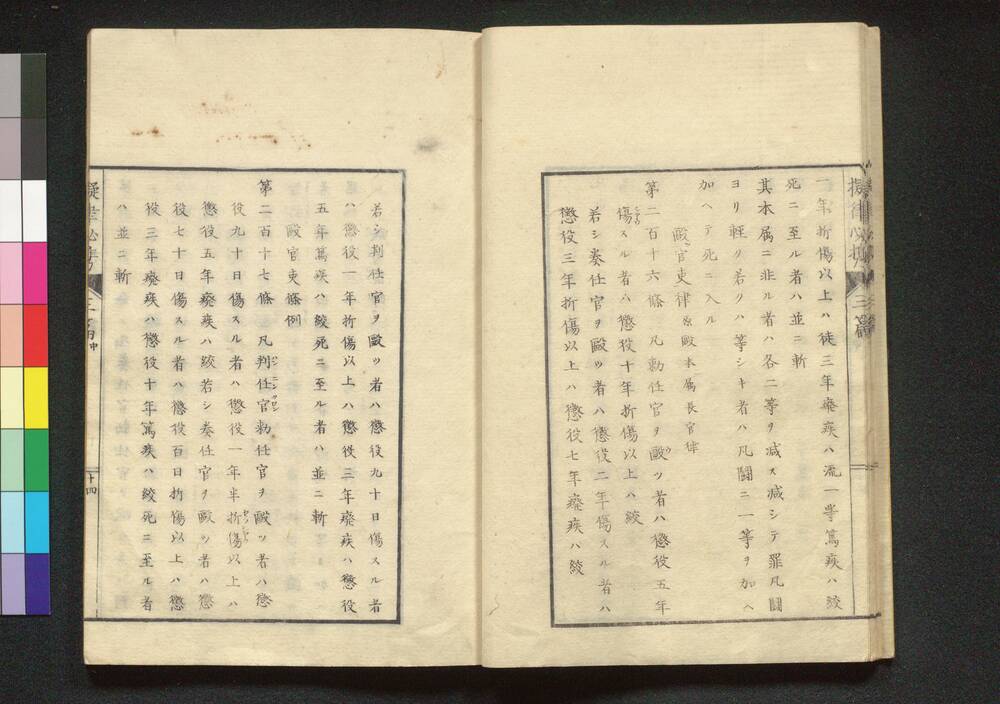 一年折傷以上ハ徒三年癈疾ハ流一等篤疾ハ絞
死ニ至ル者ハ並ニ斬
其本属ニ非ル者ハ各二等ヲ減ス減シテ罪凡鬪
ヨリ軽ク若クハ等シキ者ハ凡鬪ニ一等ヲ加ヘ
加ヘテ死ニ入ル
毆官吏律原毆本属長官律
第二百十六條 凡勅任官ヲ毆ツ者ハ懲役五年
傷スル者ハ懲役十年折傷以上ハ絞
若シ奏任官ヲ毆ツ者ハ懲役二年傷スル者ハ
懲役三年折傷以上ハ懲役七年癈疾ハ絞
三篇
若シ判任官ヲ毆ツ者ハ懲役九十日傷スル者
ハ懲役一年折傷以上ハ懲役三年癈疾ハ懲役
五年篤疾ハ絞死ニ至ル者ハ並ニ斬
毆官吏條例
第二百十七條 凡判任官勅任官ヲ毆ツ者ハ懲
役九十日傷スル者ハ懲役一年半折傷以上ハ
懲役五年癈疾ハ絞若シ奏任官ヲ毆ツ者ハ懲
役七十日傷スル者ハ懲役百日折傷以上ハ懲
役三年癈疾ハ懲役十年篤疾ハ絞死ニ至ル者
ハ並ニ斬
十四